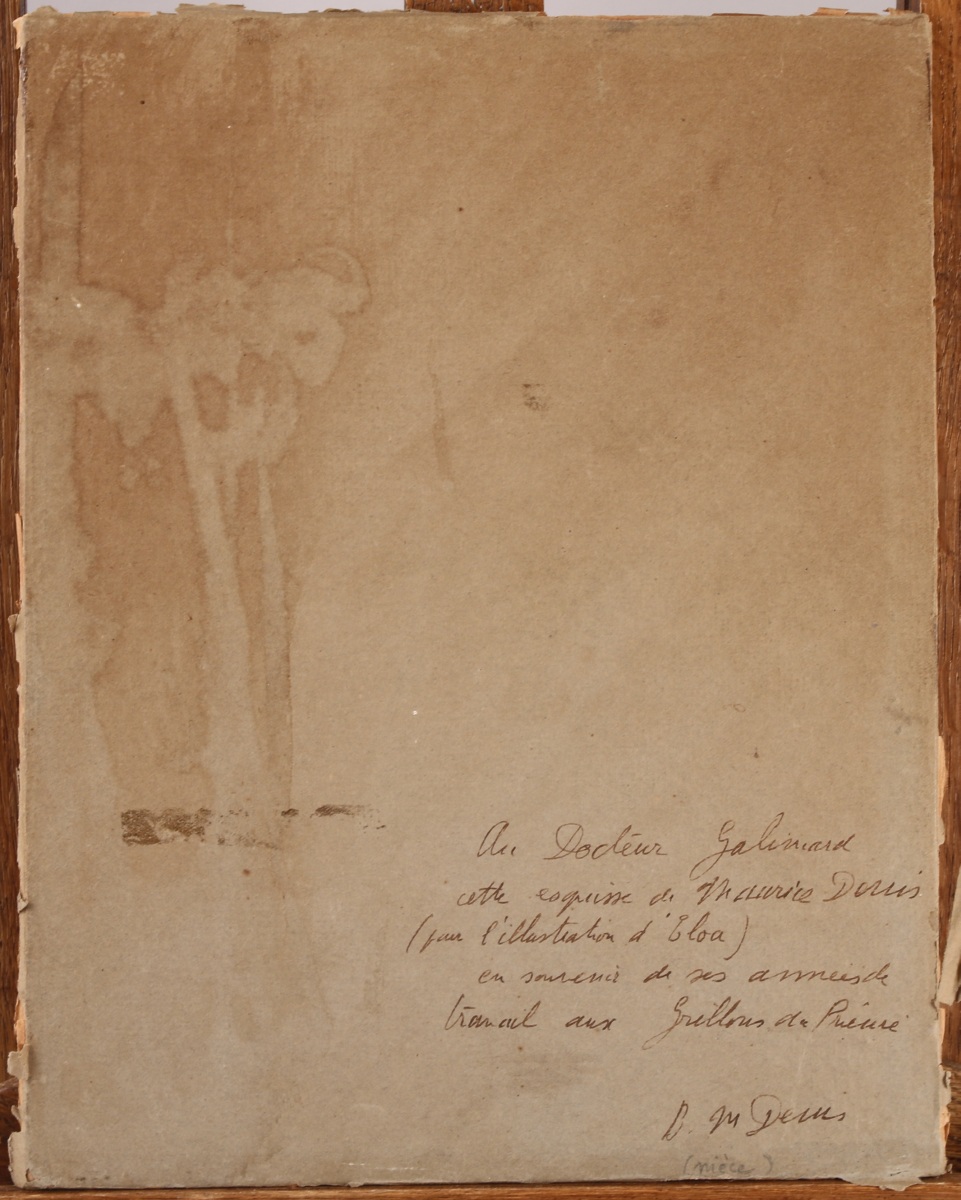 Au Docteur Galimard
cette esquisse de Maurice Denis
(pour l'illustration d'Eloa)
en souvenir de ses années de
travail aux Grillons du Prieuré
B. M Denis
(nièce)